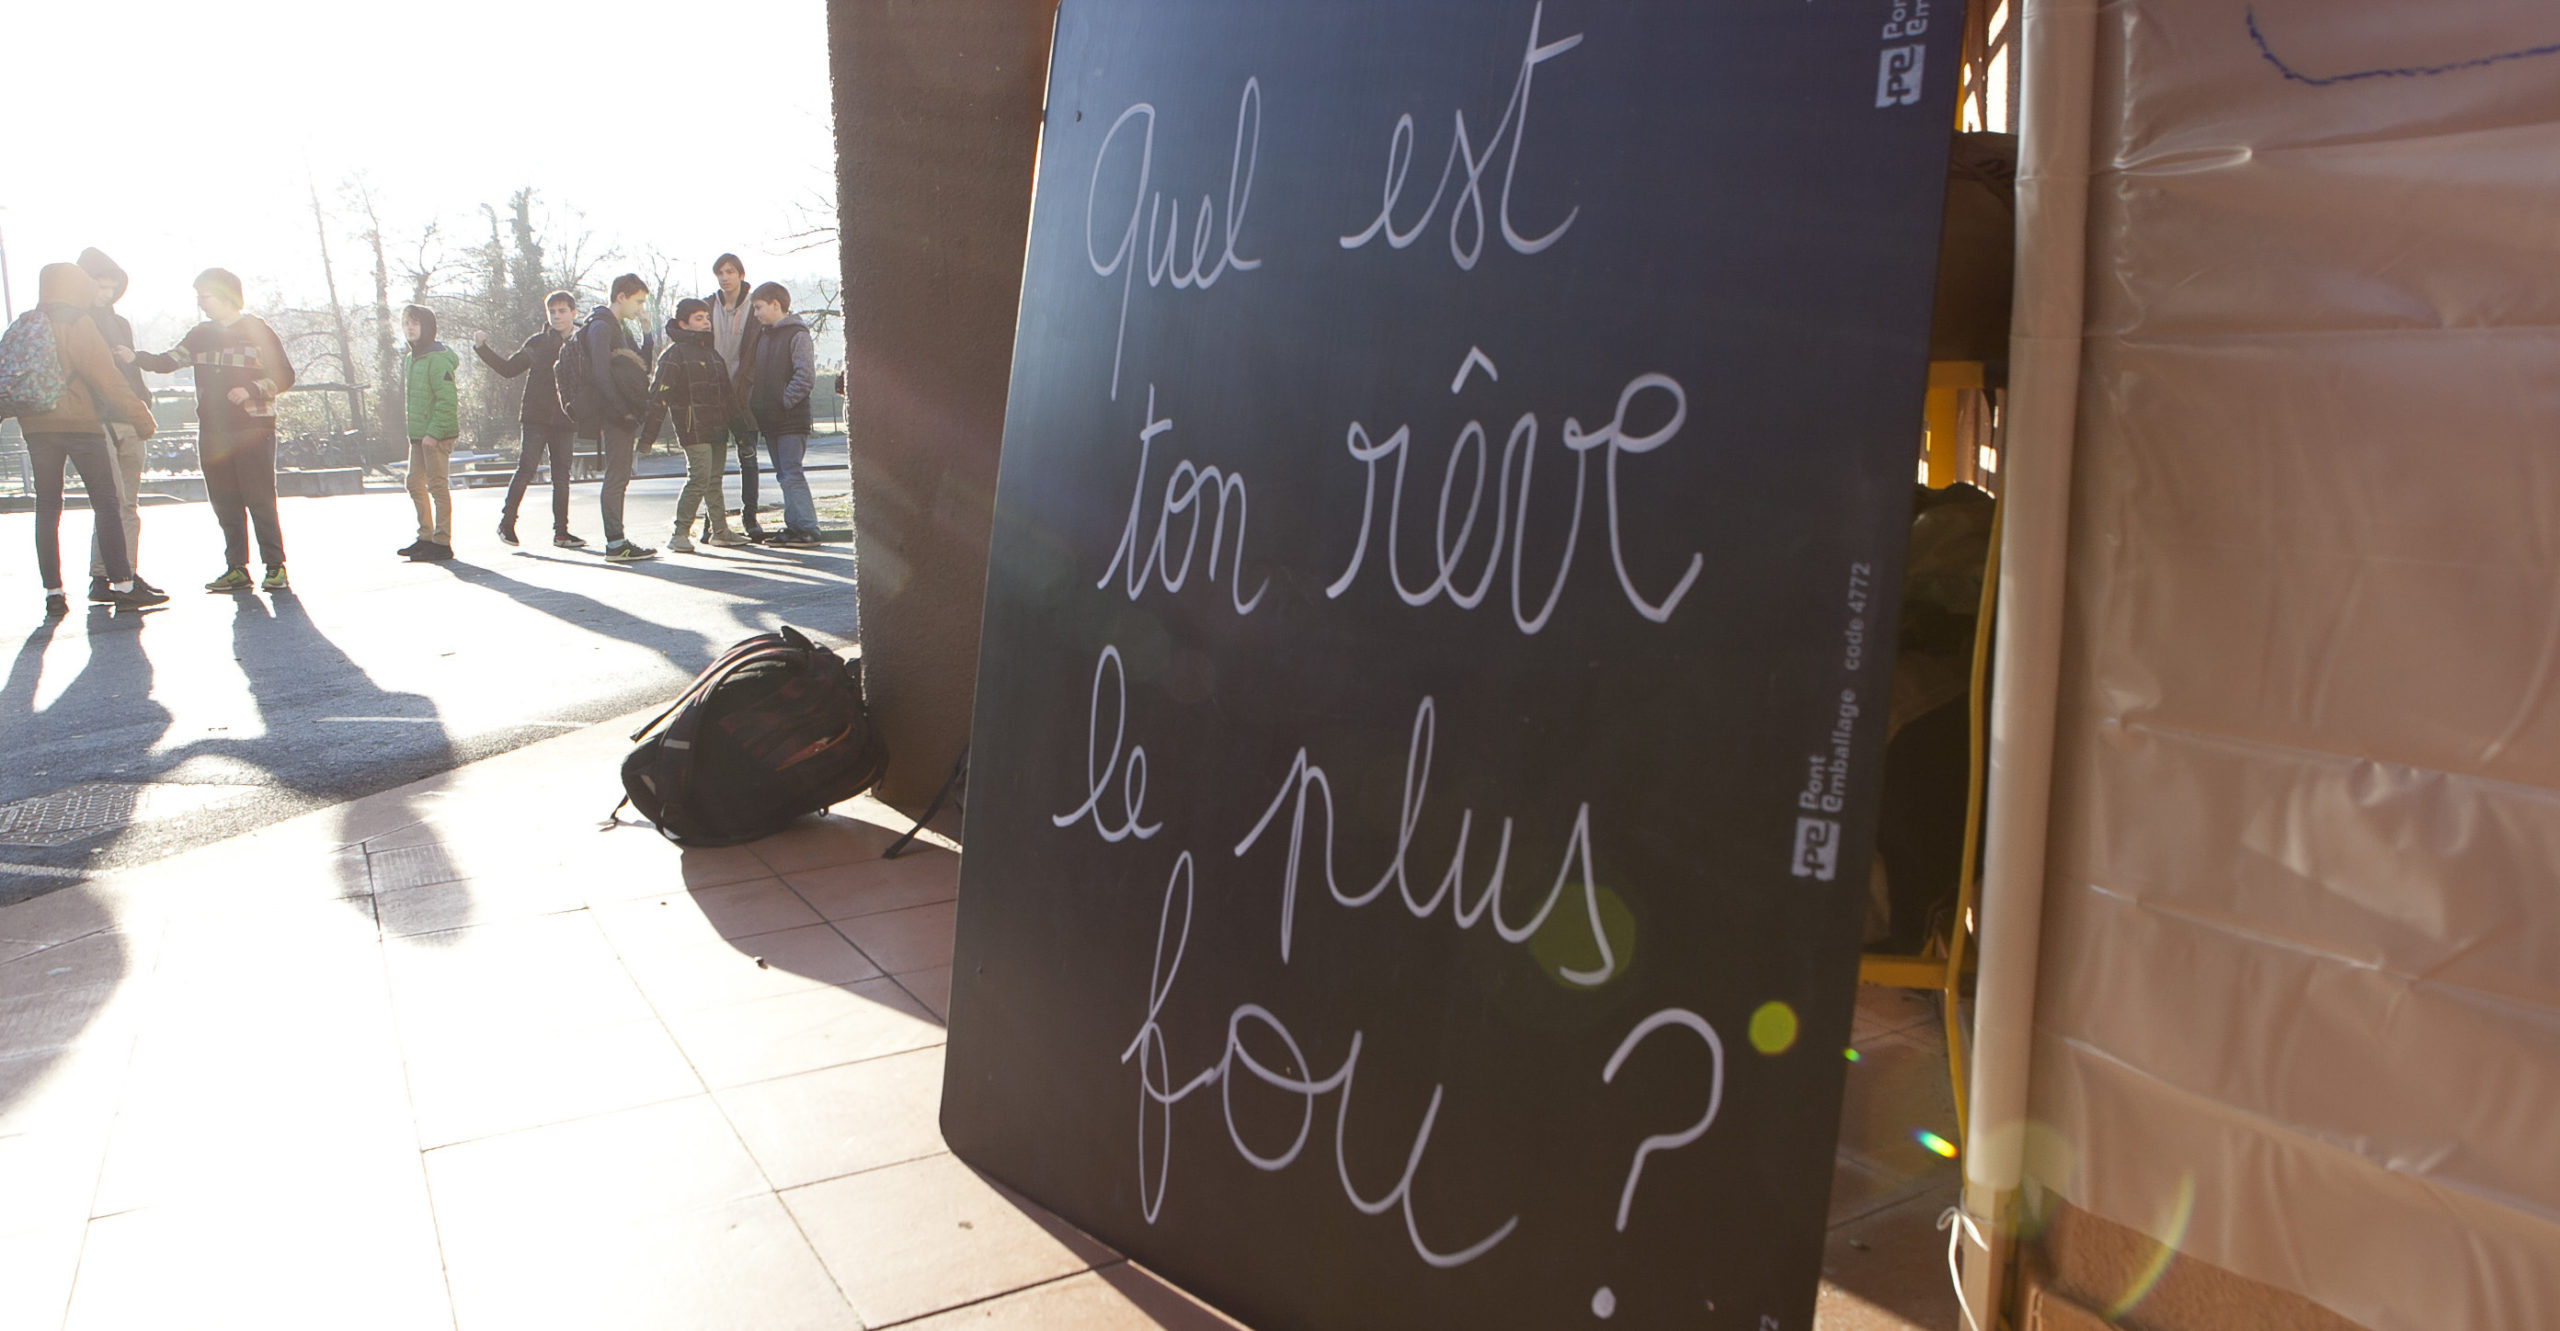 Quel est
ton rêve
le plus
fou ?
Pont
Emballage code 4772
pe